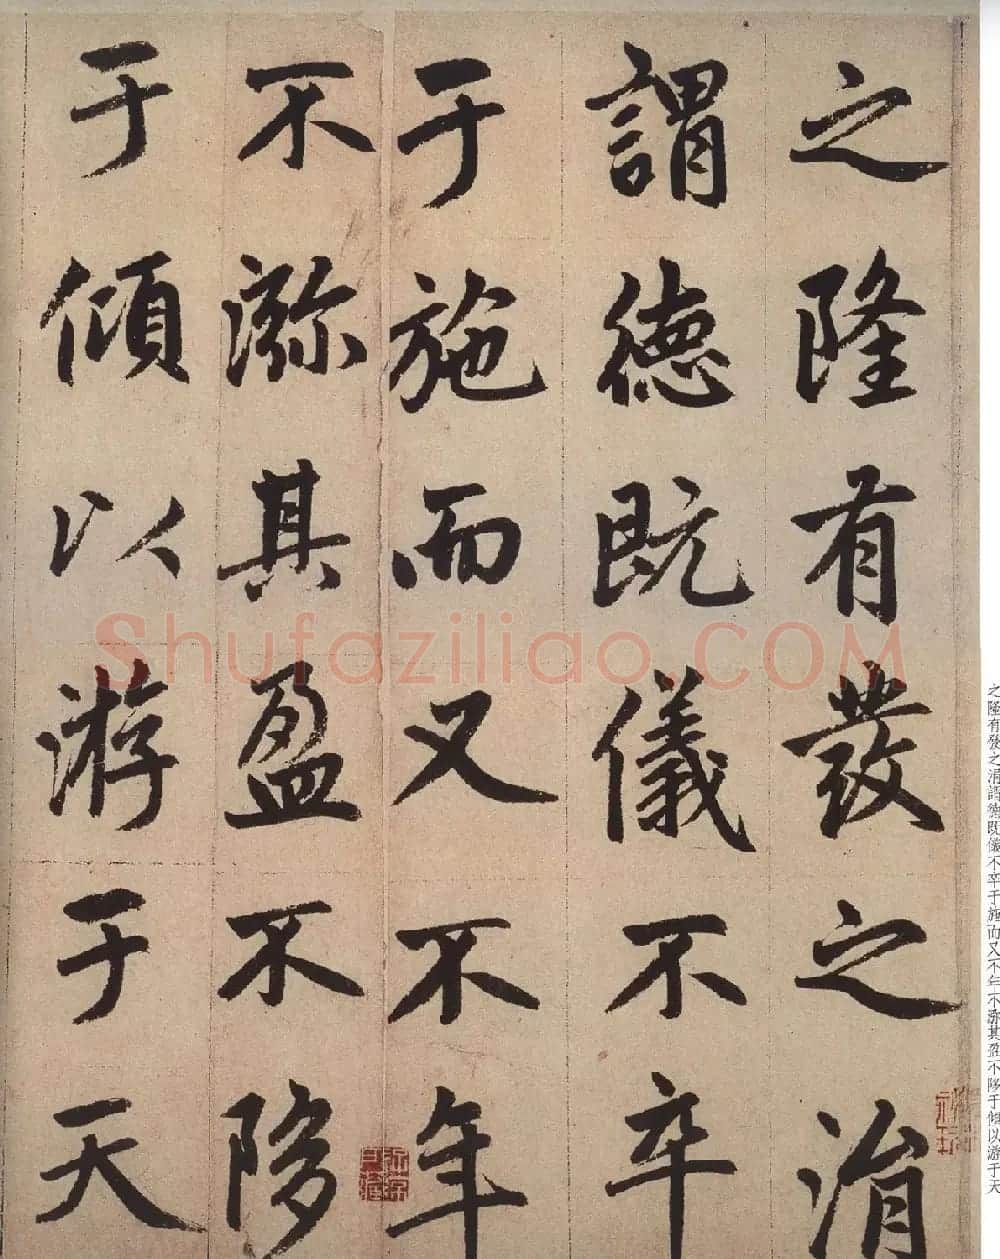 之隆有發之涓
謂德既儀不卒
于施而又不年
不㳽其盈不陊
于傾以游于天
Shufaziliao.COM
之隆有發之涓謂德既儀不卒于施而又不年不㳽其盈不陊于傾以游于天